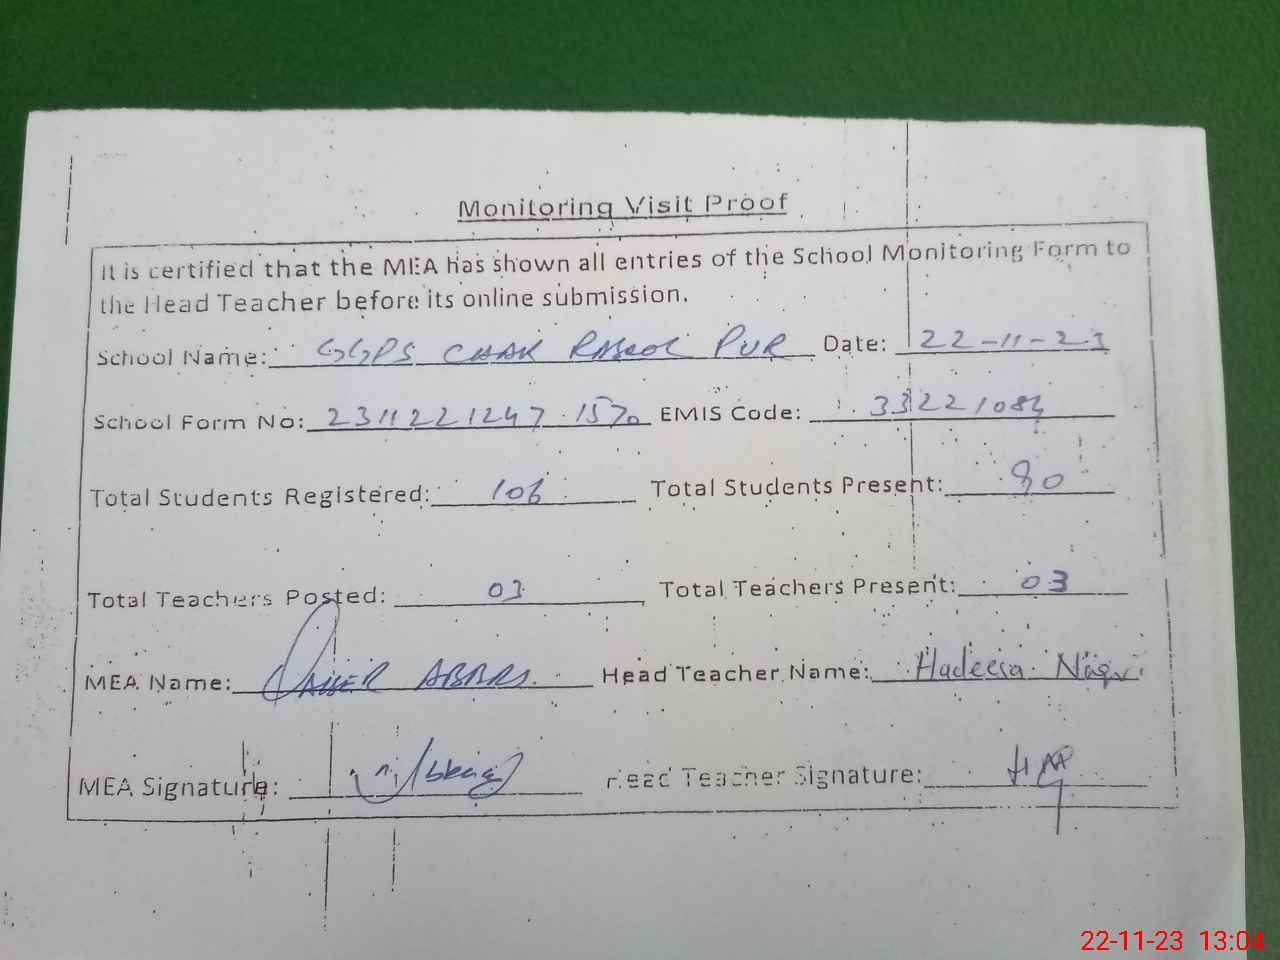 Monitoring Visit Proof
It is certified that the MEA has shown all entries of the School Monitoring Form to
the Head Teacher before its online submission.
School Name: GGPS CHAK RASOOL PUR Date: 22-11-23
School Form No: 2311221247 1570 EMIS Code: 33221084
Total Students Registered: 106 Total Students Present: 90
Total Teachers Posted: 03 Total Teachers Present: 03
MEA Name: QAISER ABBAS Head Teacher Name: Hadeesa Naqvi
MEA Signature: Head Teacher Signature:
22-11-23 13:04